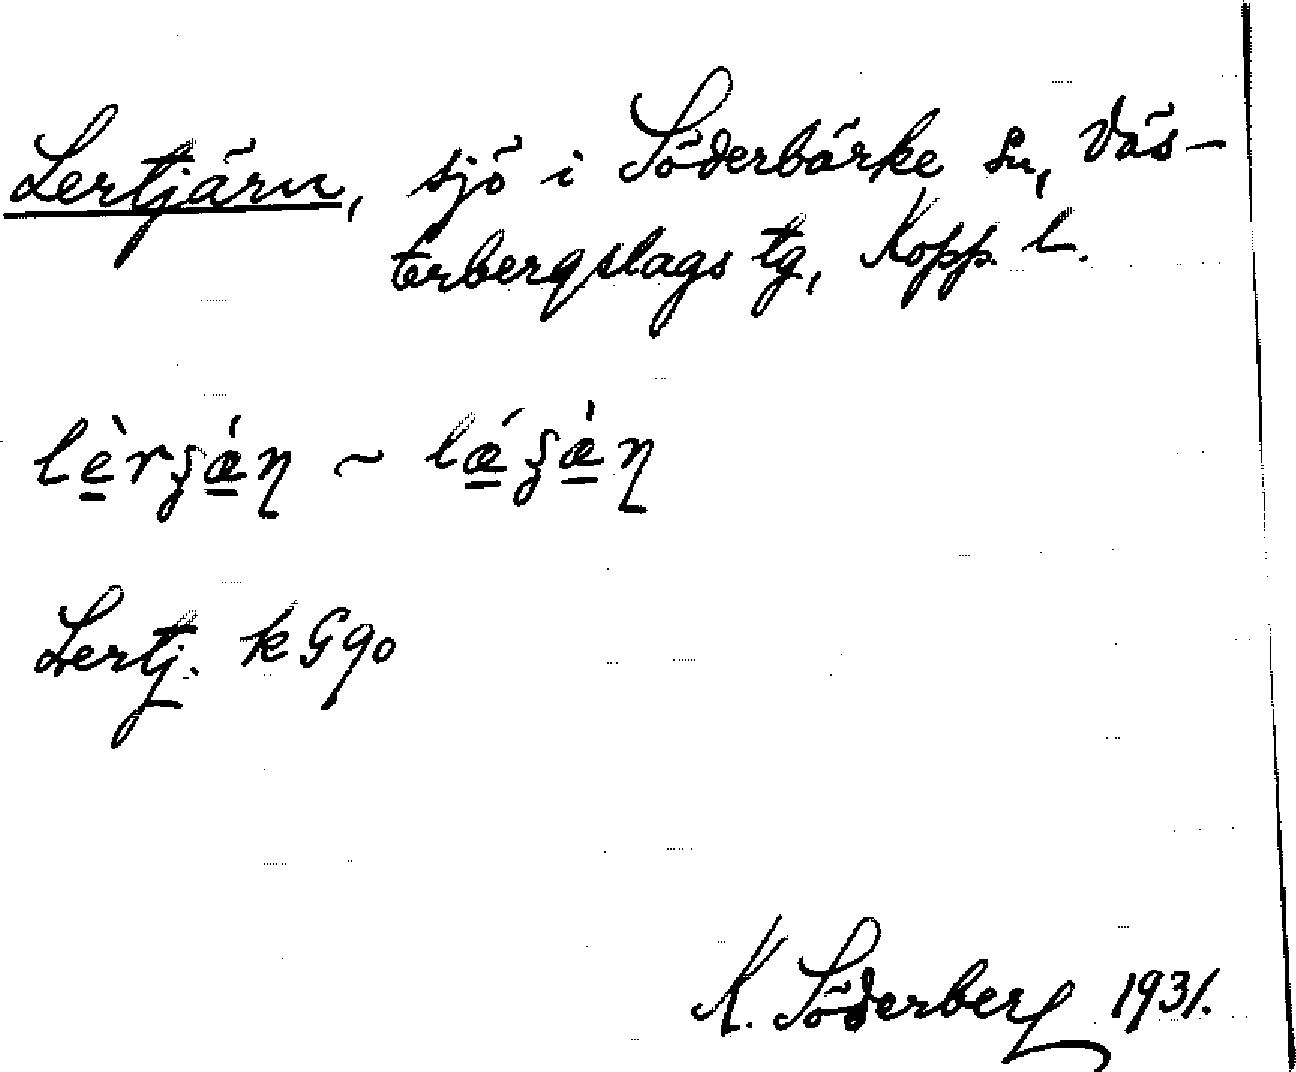 Lertjärn, sjö i Söderbärke sn, Väs-
terbergslags tg, Kopp. l.
Lertj. k G 90
K. Söderberg 1931.